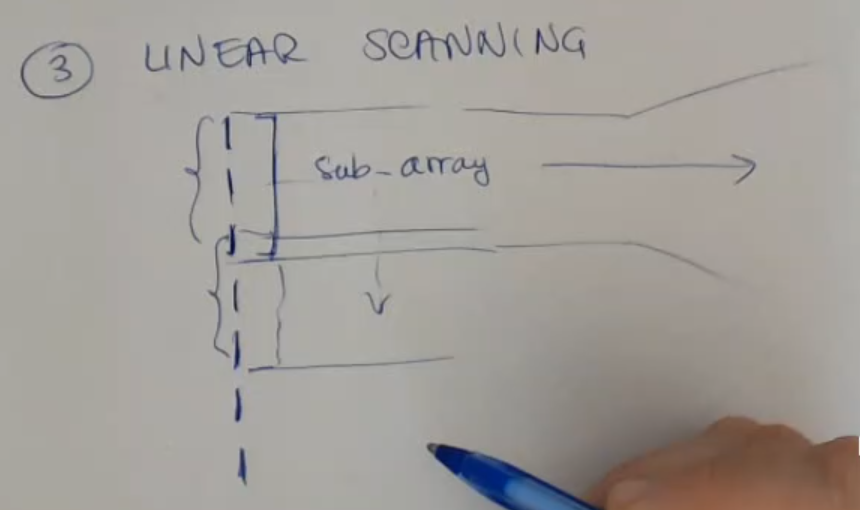 3 LINEAR SCANNING
sub-array